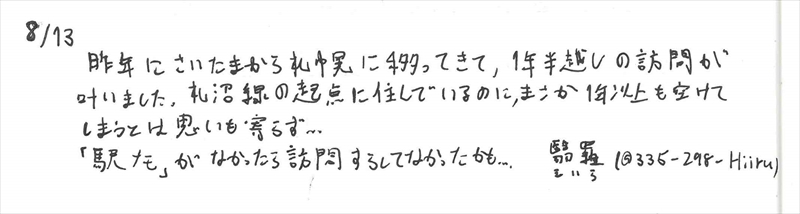 8/13
昨年にさいたまから札幌に移ってきて、1年半越しの訪問が
叶いました。札沼線の起点に住んでいるのに、まさか1年以上も空けて
しまうとは思いも寄らず…
「駅ナモ」がなかったら訪問すらしてなかったかも…
翳羅
えいら
(@335-298-Hiiru)